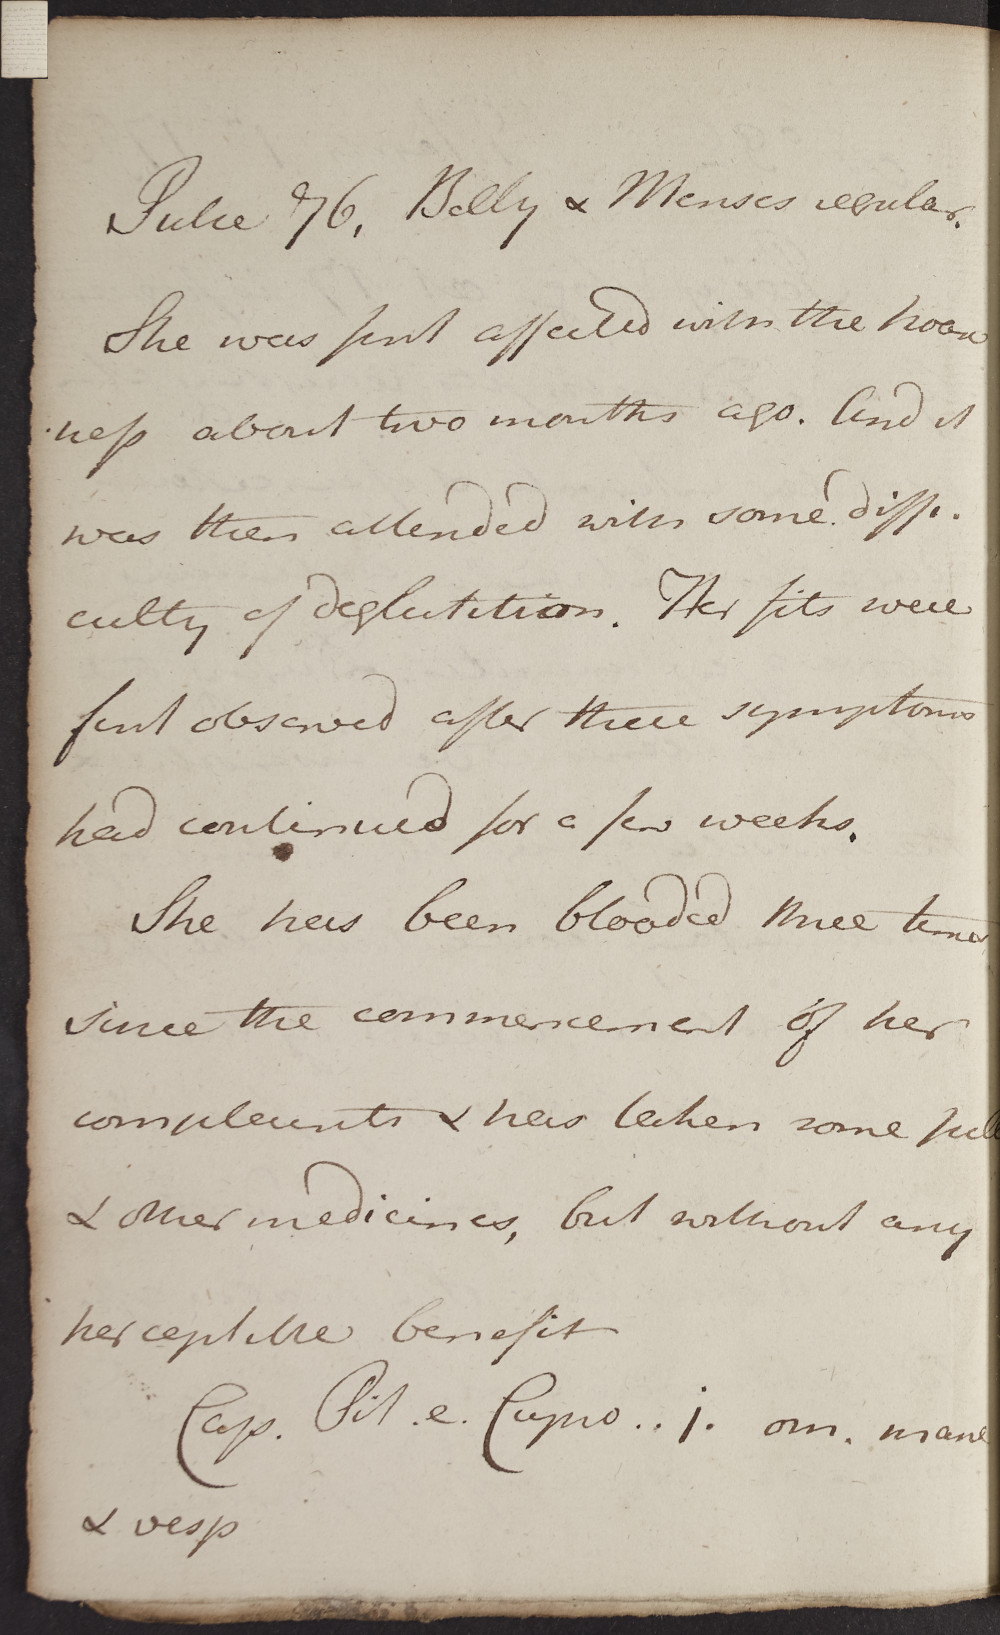 Pulse 76, Belly & Menses regular.
She was first affected with the hoars
ness about two months ago. And it
was then attended with some diffi.
culty of deglutition. Her fits were
first observed after these symptoms
had continued for a few weeks.
She has been blooded three times
since the commencement of her
complaints & has taken some pills
& other medicines, but without any
perceptible benefit
Cap. Pil. e. Cupro.. j. om. mane
& vesp